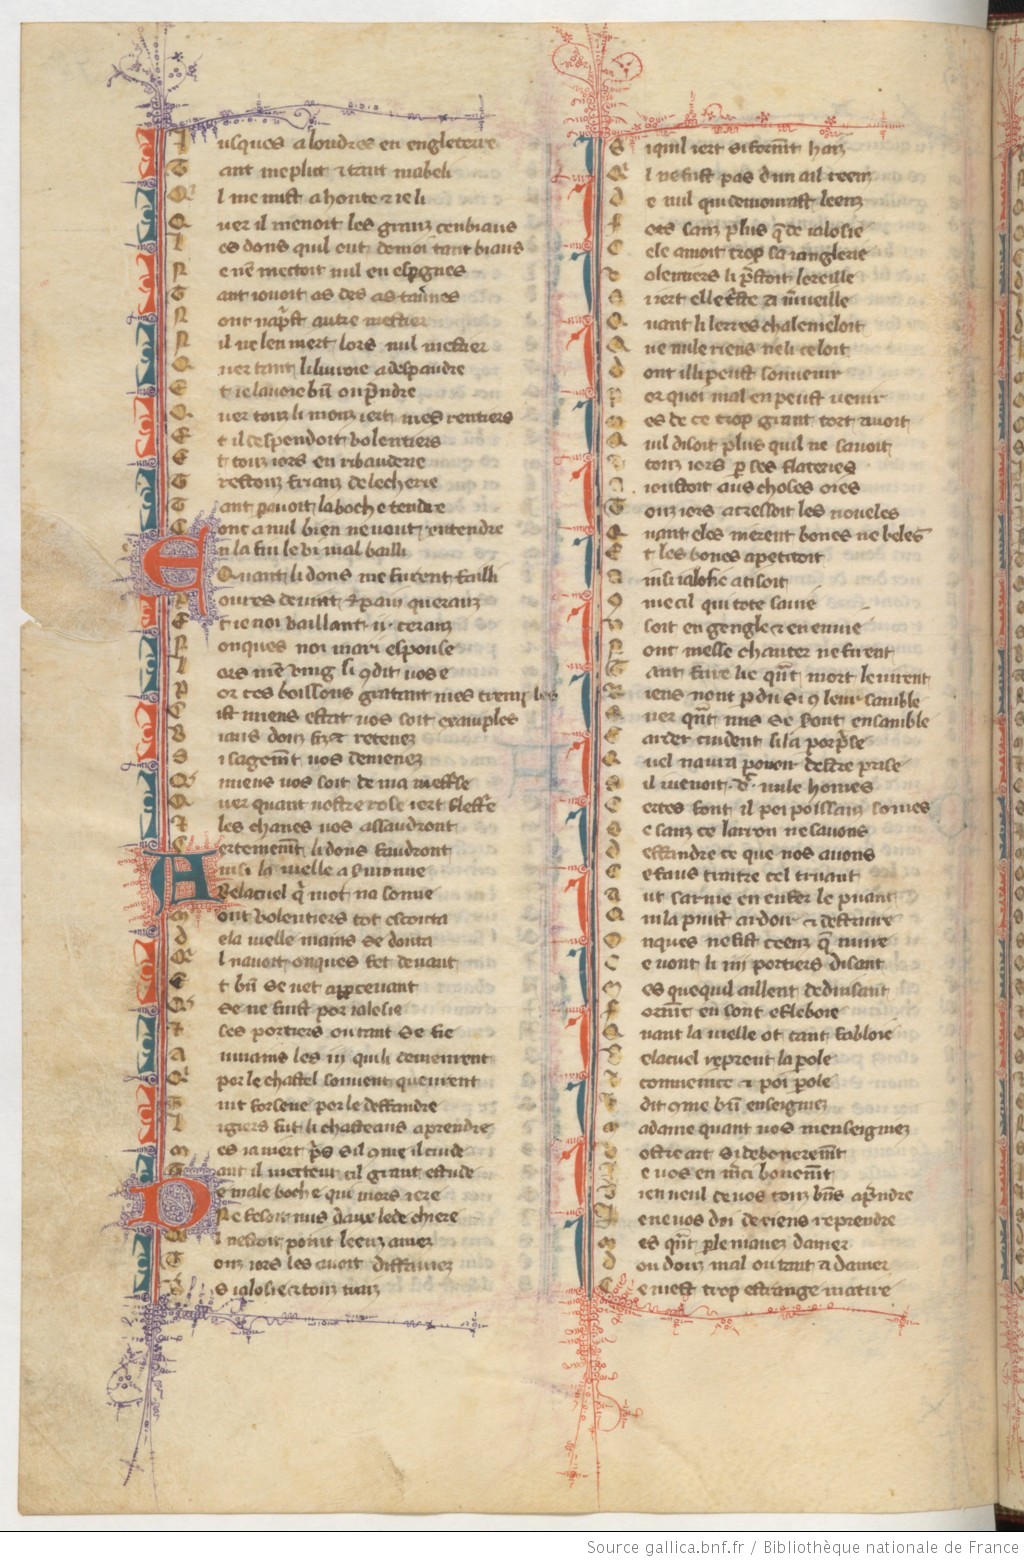 Jusques a londres en engleterre
Tant me plut et tant mabeli
Quil me mist a honte et ie li
Quer il menoit les granz cenbiaus
Les dons quil eut de moi tant biaus
Ne nen mectoit nul en espignes
Tant iouoit as des as tauernes
Nont naprist autre mestier
Nil ne len niert lors nul mestier
Quer tant li liuroie a despandre
Et ie lauoie bien ou prendre
Quer touz li monz iert mes rentiers
Et il despendoit volentiers
Et touz iors en ribauderie
Trestouz frianz de lecherie
Tant par auoit la boche tendre
Conc a nul bien ne vout entendre
En la fin le vi mal bailli
Quant li dons me furent failli
Poures deuint et pain queranz
Et ie noi vaillant ij ceranz
Nonques noi mari espouse
Lors men ving si com dit vos e
Por ces boissons gratant mes temples
Cist miens estat vos soit examples
Biaus douz filz et retenez
Si sagement vos demenez
Que miens vos soit de ma mestrse
Quer quant vostre rose iert flestre
Et les chanes vos assaudront
Certenement li dons faudront
Ainsi la vielle a sermonne
Belacuel qui mot na sonne
Mout volentiers tot escouta
De la vielle mains se douta
Quil nauoit onques fet deuant
Et bien se vet apperceuant
Que se ne fust por ialosie
Et ses portiers ou tant se fie
Au mains les iij qui li demeurent
Qui por le chastel souvent queurent
Tuit forsene por le deffandre
Legiers fut li chasteaus a prendre
Mes ia niert pris si com il cuide
Tant il mettent cil grant estude
De male boche qui mors iere
Ne fesoit nus daus lede chiere
Quil nestoit point leenz amez
Touz iors les auoit diffamez
Vers ialosie et touz traiz
Si quil iert si forment haiz
Quil ne fust pas dun ail reenz
De nul qui demourast leenz
Fors sanz plus que de ialosie
Cele amoit trop sa ianglerie
Volentiers li prestoit loreille
Si iert elle triste a merueille
Quant li lerres chalemeloit
Que nule riens ne li celoit
Dont il li peust souuenir
Por quoi mal en peust venir
Mes de ce trop grant tort auoit
Quil disoit plus quil ne sauoit
Et touz iors par ses flateries
Aioustoit aus choses oies
Touz iors acressoit les noueles
Quant eles nierent bones ne beles
Et les bones apetitoit
Ainsi ialosie atisoit
Comme cil qui tote sa vie
Vsoit en gengle et en enuie
Nonc messe chanter ne firent
Tant furent lie quant mort le virent
Riens nont perdu si com leur samble
Quer quant mis se seront ensamble
Garder cuident si la porprise
Quel naura pouoir destre prise
Sil i venoit .vc. mile homes
Certes font il poi poissanz somes
Se sanz ce larron ne sauons
Deffandre ce que nos auons
Ce faus traitre cel truant
Aut same en enfer le puant
Qui la puist ardoir et destruire
Onques ne fist ceenz que nuire
Ce vont li iij portiers disant
Mes que quil aillent deduisant
Forment en sont afebloie
Quant la vielle ot tant fabloie
Belacuel reprent la parole
Couuence et poi parole
Et dit comme bien enseigniez
Madame quant vos menseigniez
Vostre art si debonerement
Ie vos en merci bonement
Bien veul de vos touz biens aprendre
Ie ne vos doi de riens reprendre
Mes quant parle mauez damer
Dou douz mal ou tant a damer
Ce mest trop estrange matire